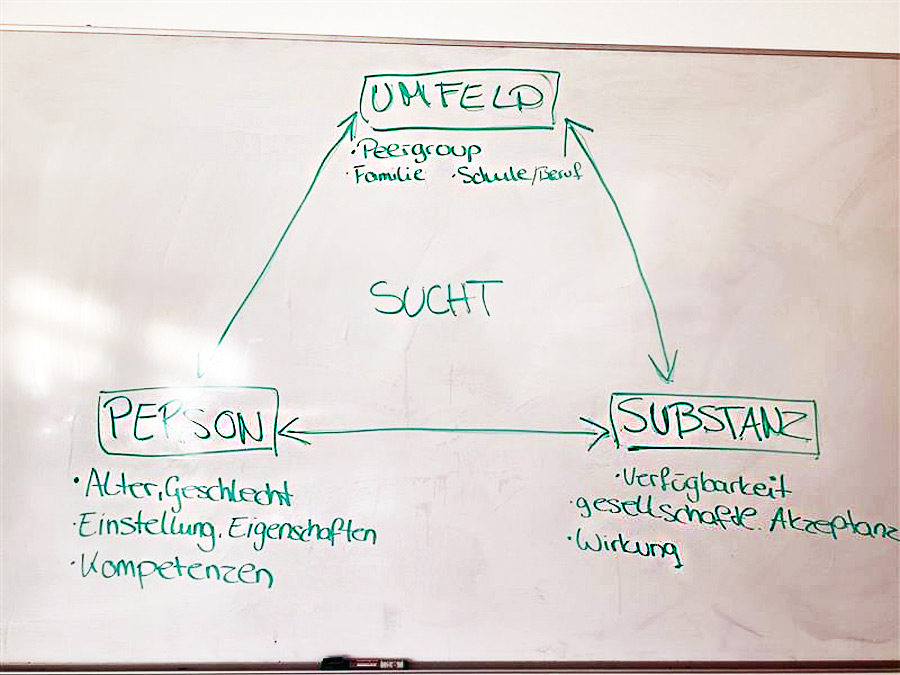 UMFELD
· Peergroup
· Familie · Schule/Beruf
SUCHT
PERSON
· Alter, Geschlecht
· Einstellung, Eigenschaften
· Kompetenzen
SUBSTANZ
· Verfügbarkeit
· gesellschaftl. Akzeptanz
· Wirkung